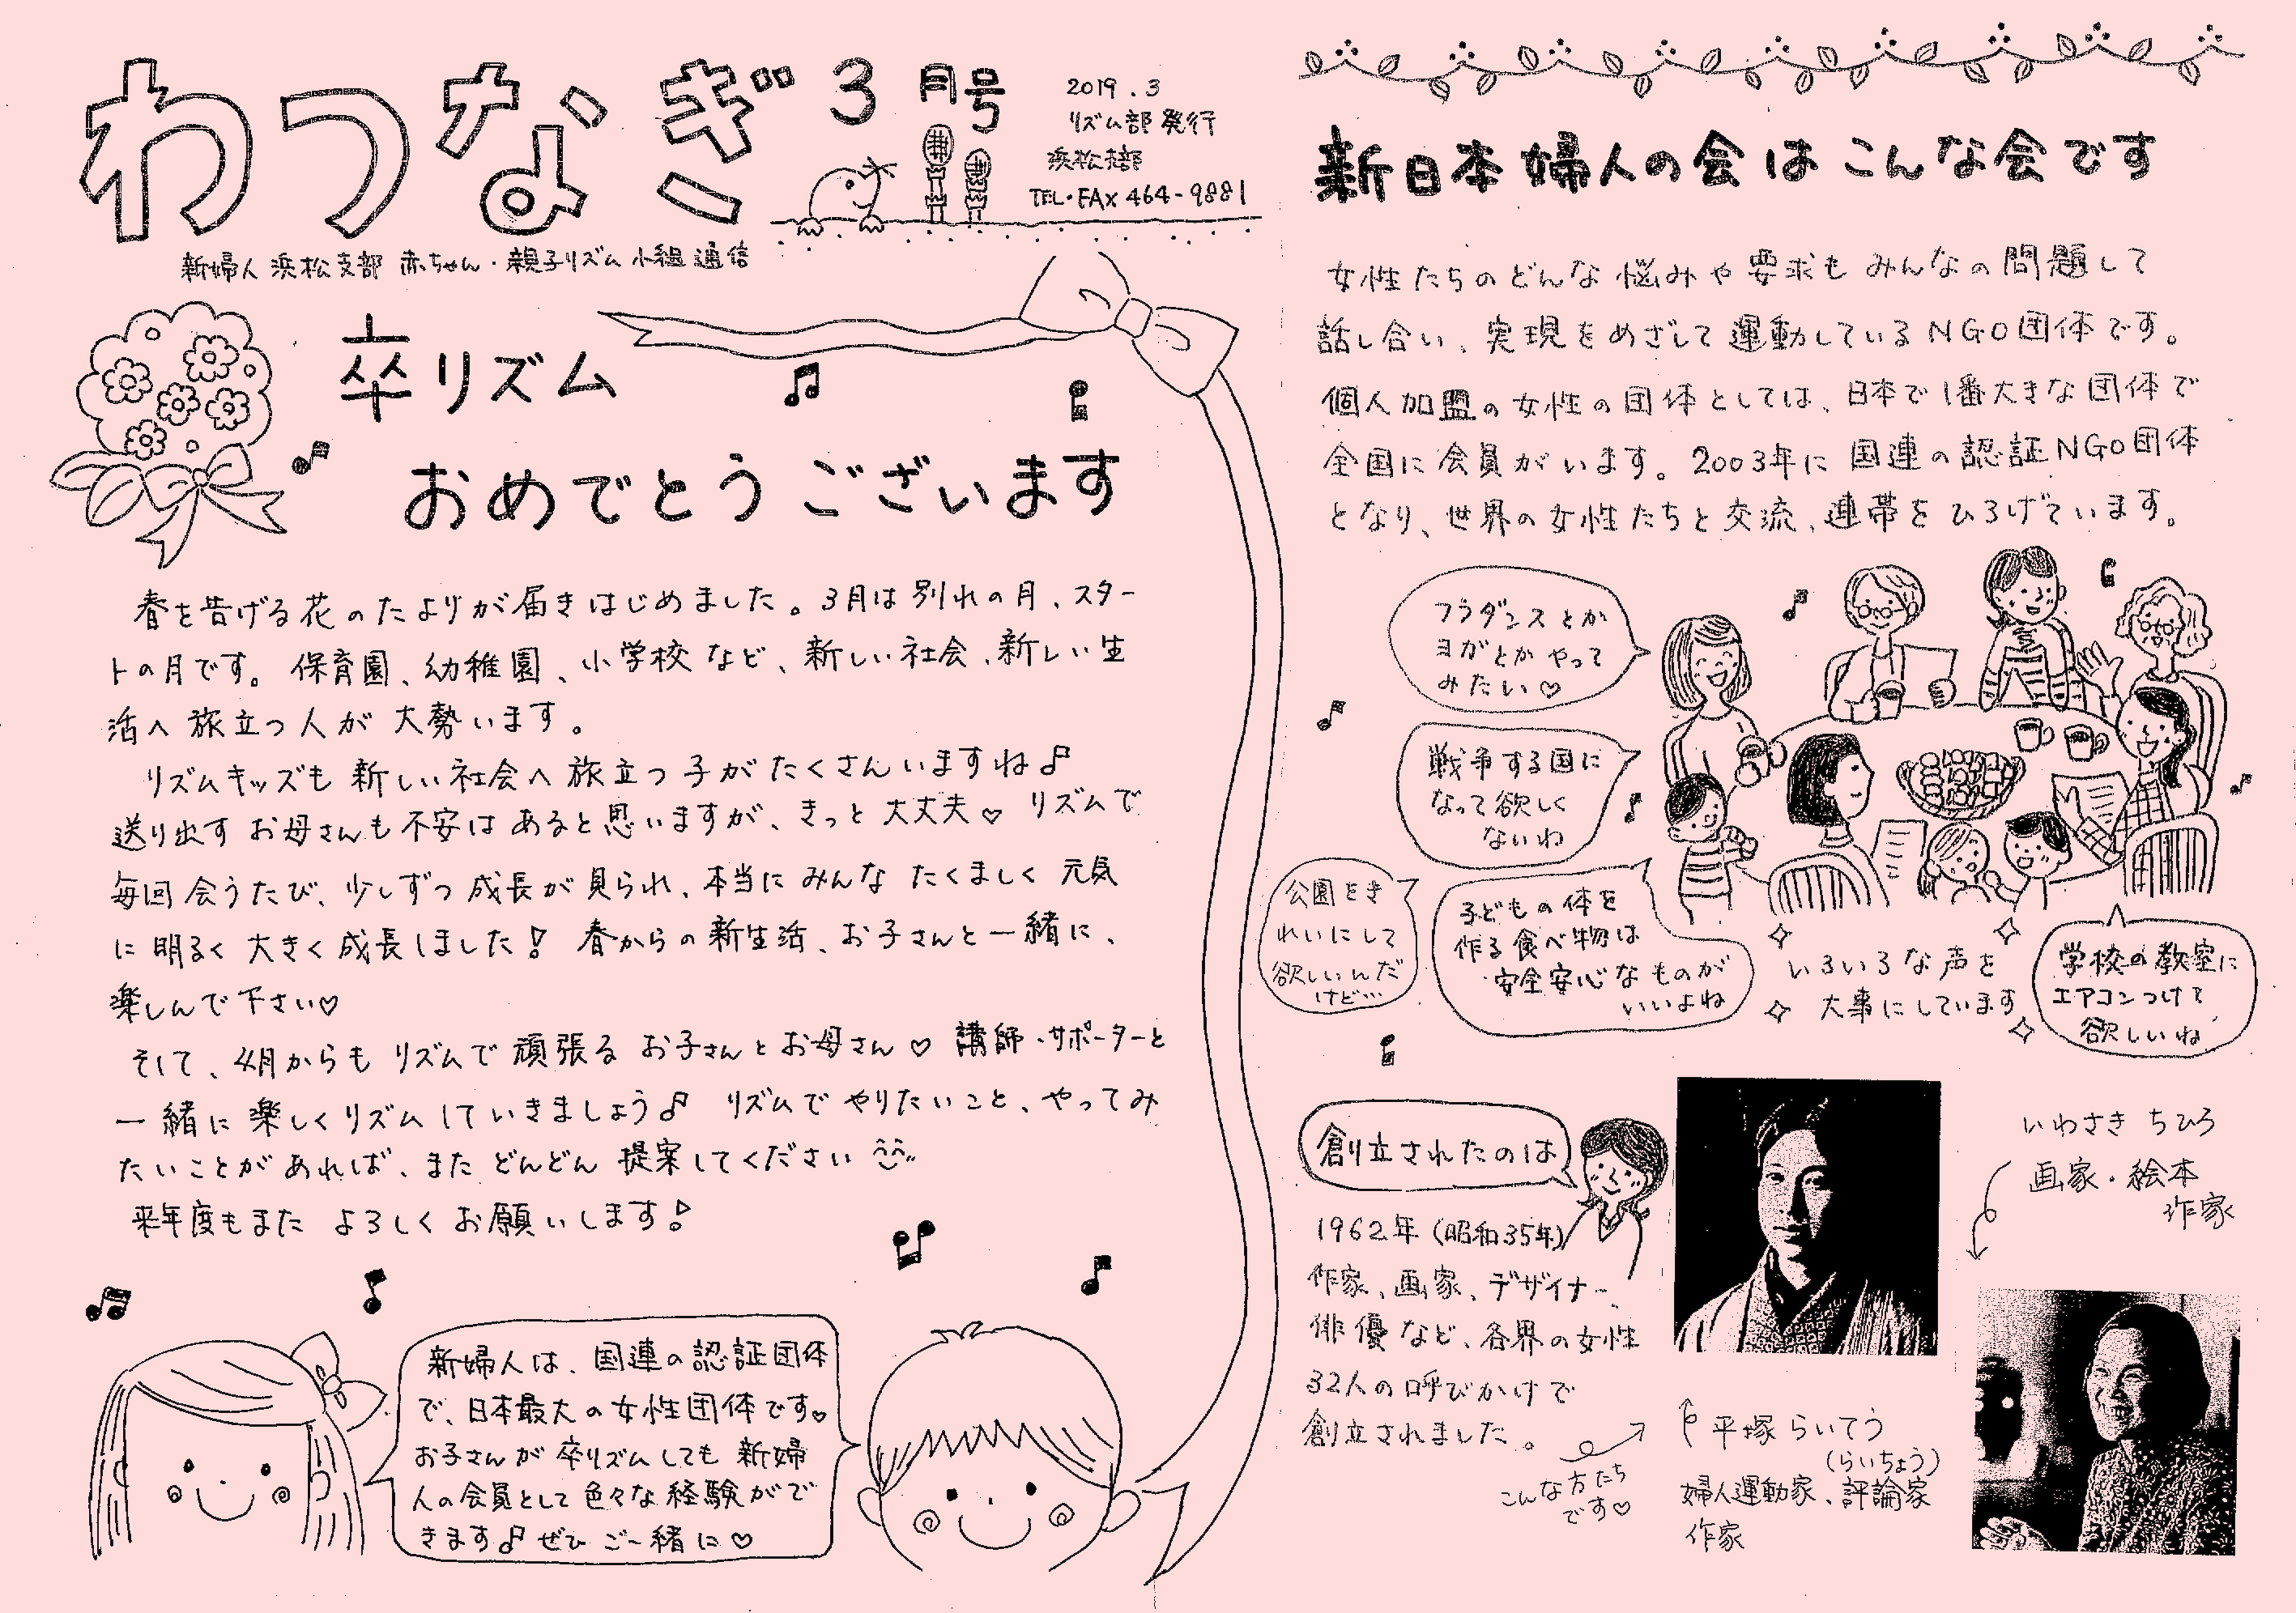 わつなぎ 3月号
2019.3
リズム部発行
浜松支部
TEL・FAX 464-9881
新婦人 浜松支部 赤ちゃん・親子リズム小組通信
卒リズム
おめでとうございます
春を告げる花のたよりが届きはじめました。3月は別れの月、スター
トの月です。保育園、幼稚園、小学校など、新しい社会、新しい生
活へ旅立つ人が大勢います。
リズムキッズも新しい社会へ旅立つ子がたくさんいますね♪
送り出すお母さんも不安はあると思いますが、きっと大丈夫♡ リズムで
毎回会うたび、少しずつ成長が見られ、本当にみんなたくましく元気
に明るく大きく成長しました! 春からの新生活、お子さんと一緒に、
楽しんで下さい♡
そして、4月からもリズムで頑張るお子さんとお母さん♡ 講師・サポーターと
一緒に楽しくリズムしていきましょう♪ リズムでやりたいこと、やってみ
たいことがあれば、またどんどん提案してください
来年度もまたよろしくお願いします!
新婦人は、国連の認証団体
で、日本最大の女性団体です♡
お子さんが卒リズムしても新婦
人の会員として色々な経験がで
きます♪ ぜひご一緒に♡
新日本婦人の会はこんな会です
女性たちのどんな悩みや要求もみんなの問題して
話し合い、実現をめざして運動しているNGO団体です。
個人加盟の女性の団体としては、日本で1番大きな団体で
全国に会員がいます。2003年に国連の認証NGO団体
となり、世界の女性たちと交流、連帯をひろげています。
フラダンスとか
ヨガとかやって
みたい♡
戦争する国に
なって欲しく
ないわ
公園をき
れいにして
欲しいんだ
けど…
子どもの体を
作る食べ物は
安全安心なものが
いいよね
いろいろな声を
大事にしています
学校の教室に
エアコンつけて
欲しいね
創立されたのは
1962年(昭和35年)
作家、画家、デザイナー、
俳優など、各界の女性
32人の呼びかけで
創立されました。
こんな方たち
です♡
平塚らいてう
(らいちょう)
婦人運動家、評論家
作家
いわさきちひろ
画家・絵本
作家